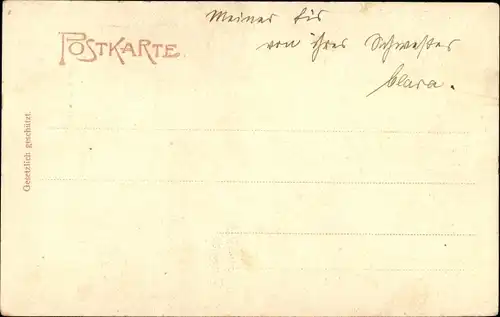 Meiner Lis
von ihrer Schwester
Clara.
POSTKARTE.
Gesetzlich geschützt.